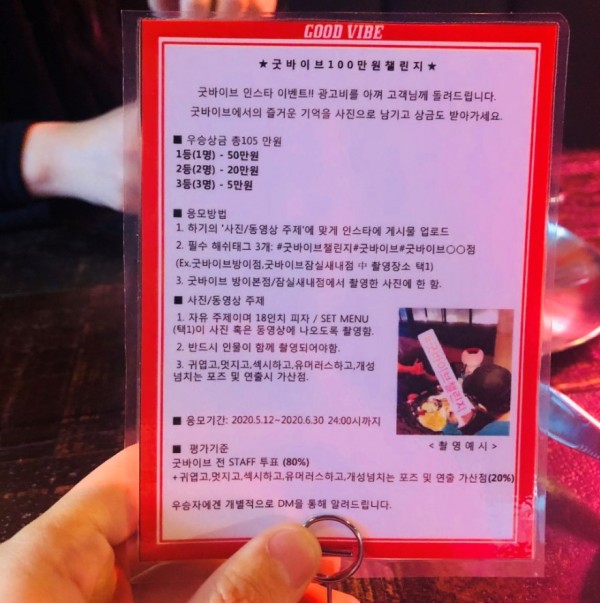 GOOD VIBE
★굿바이브100만원챌린지★
굿바이브 인스타 이벤트!! 광고비를 아껴 고객님께 돌려드립니다.
굿바이브에서의 즐거운 기억을 사진으로 남기고 상금도 받아가세요.
■ 우승상금 총105 만원
1등(1명) - 50만원
2등(2명) - 20만원
3등(3명) - 5만원
■ 응모방법
1. 하기의 '사진/동영상 주제'에 맞게 인스타에 게시물 업로드
2. 필수 해쉬태그 3개: #굿바이브챌린지#굿바이브#굿바이브○○점
(Ex.굿바이브방이점,굿바이브잠실새내점 中 촬영장소 택1)
3. 굿바이브 방이본점/잠실새내점에서 촬영한 사진에 한 함.
■ 사진/동영상 주제
1. 자유 주제이며 18인치 피자 / SET MENU
(택1)이 사진 혹은 동영상에 나오도록 촬영함.
2. 반드시 인물이 함께 촬영되어야함.
3. 귀엽고,멋지고,섹시하고,유머러스하고,개성
넘치는 포즈 및 연출시 가산점.
굿바이브챌린지
<촬영예시>
■ 응모기간: 2020.5.12~2020.6.30 24:00시까지
■ 평가기준
굿바이브 전 STAFF 투표 (80%)
+귀엽고,멋지고,섹시하고,유머러스하고,개성넘치는 포즈 및 연출 가산점(20%)
우승자에겐 개별적으로 DM을 통해 알려드립니다.